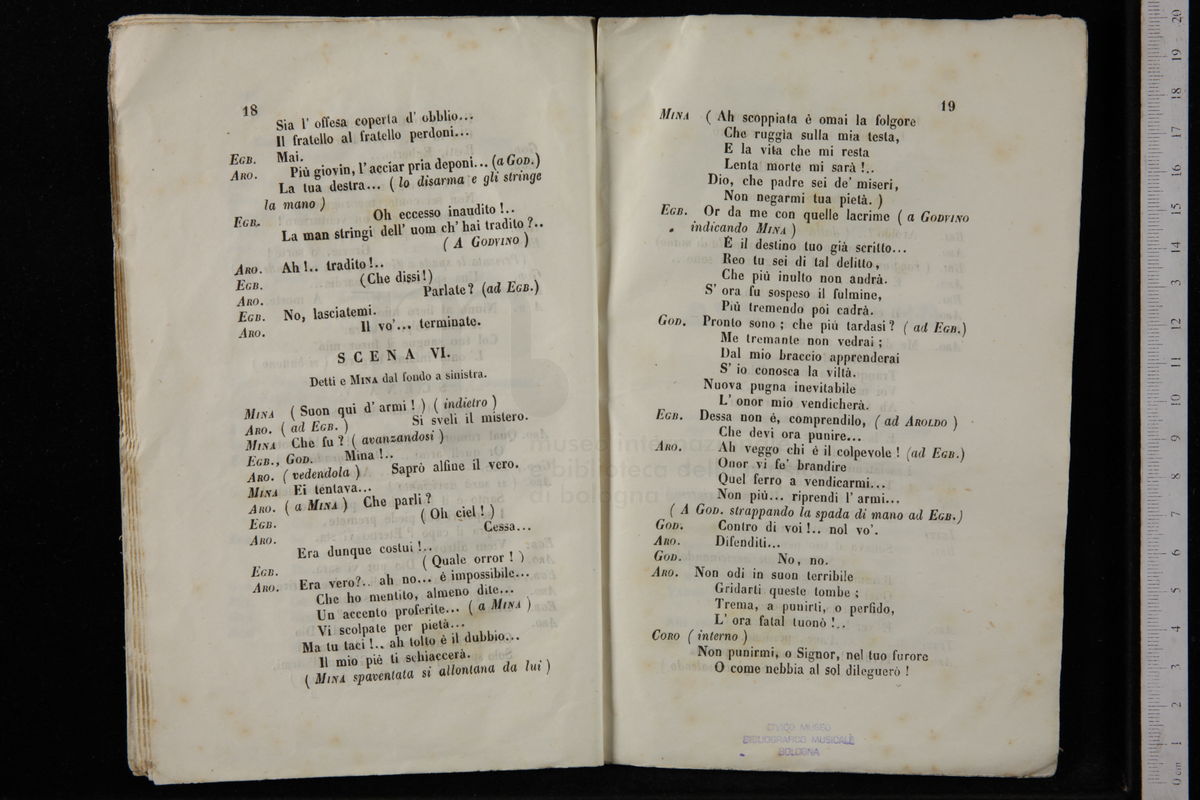 18
Sia l' offesa coperta d' obblio...
Il fratello al fratello perdoni...
EGB. Mai.
ARO. Più giovin, l' acciar pria deponi... (a GOD.)
La tua destra... ( lo disarma e gli stringe
la mano )
EGB. Oh eccesso inaudito !..
La man stringi dell' uom ch' hai tradito ?..
( A GODVINO )
ARO. Ah !.. tradito !..
EGB. (Che dissi!)
ARO. Parlate? (ad EGB.)
EGB. No, lasciatemi.
ARO. Il vo'... terminate.
SCENA VI.
Detti e MINA dal fondo a sinistra.
MINA ( Suon qui d' armi ! ) ( indietro )
ARO. ( ad EGB. ) Si sveli il mistero.
MINA Che fu ? ( avanzandosi )
EGB., GOD. Mina !..
ARO. ( vedendola ) Saprò alfine il vero.
MINA Ei tentava...
ARO. ( a MINA ) Che parli ?
EGB. ( Oh ciel ! )
ARO. Cessa...
Era dunque costui !..
EGB. ( Quale orror ! )
ARO. Era vero?.. ah no... è impossibile...
Che ho mentito, almeno dite...
Un accento proferite... ( a MINA )
Vi scolpate per pietà...
Ma tu taci !.. ah tolto è il dubbio...
Il mio piè ti schiaccerà.
( MINA spaventata si allontana da lui )
19
MINA ( Ah scoppiata è omai la folgore
Che ruggia sulla mia testa,
E la vita che mi resta
Lenta morte mi sarà !..
Dio, che padre sei de' miseri,
Non negarmi tua pietà. )
EGB. Or da me con quelle lacrime ( a GODVINO
indicando MINA )
È il destino tuo già scritto...
Reo tu sei di tal delitto,
Che più inulto non andrà.
S' ora fu sospeso il fulmine,
Più tremendo poi cadrà.
GOD. Pronto sono ; che più tardasi ? ( ad EGB.)
Me tremante non vedrai ;
Dal mio braccio apprenderai
S' io conosca la viltà.
Nuova pugna inevitabile
L' onor mio vendicherà.
EGB. Dessa non è, comprendilo, ( ad AROLDO )
Che devi ora punire...
ARO. Ah veggo chi è il colpevole ! (ad EGB.)
Onor vi fe' brandire
Quel ferro a vendicarmi...
Non più... riprendi l' armi...
( A GOD. strappando la spada di mano ad EGB.)
GOD. Contro di voi !.. nol vo'.
ARO. Difenditi...
GOD. No, no.
ARO. Non odi in suon terribile
Gridarti queste tombe ;
Trema, a punirti, o perfido,
L' ora fatal tuonò !..
CORO ( interno )
Non punirmi, o Signor, nel tuo furore
O come nebbia al sol dileguerò !
CIVICO MUSEO
BIBLIOGRAFICO MUSICALE
BOLOGNA
museo internaz
e biblioteca della
di bologna
0 cm 1 2 3 4 5 6 7 8 9 10 11 12 13 14 15 16 17 18 19 20